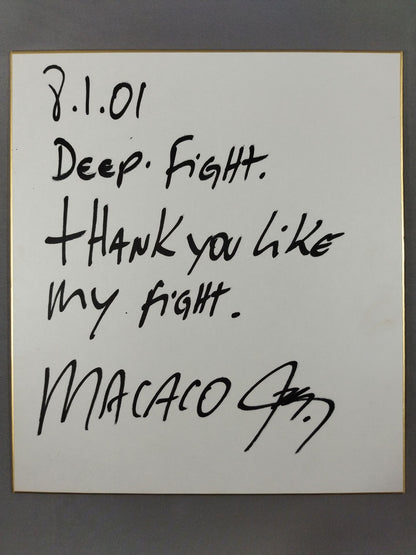 8.1.01
Deep. Fight.
tHANK you Like
my fight.
MACACO